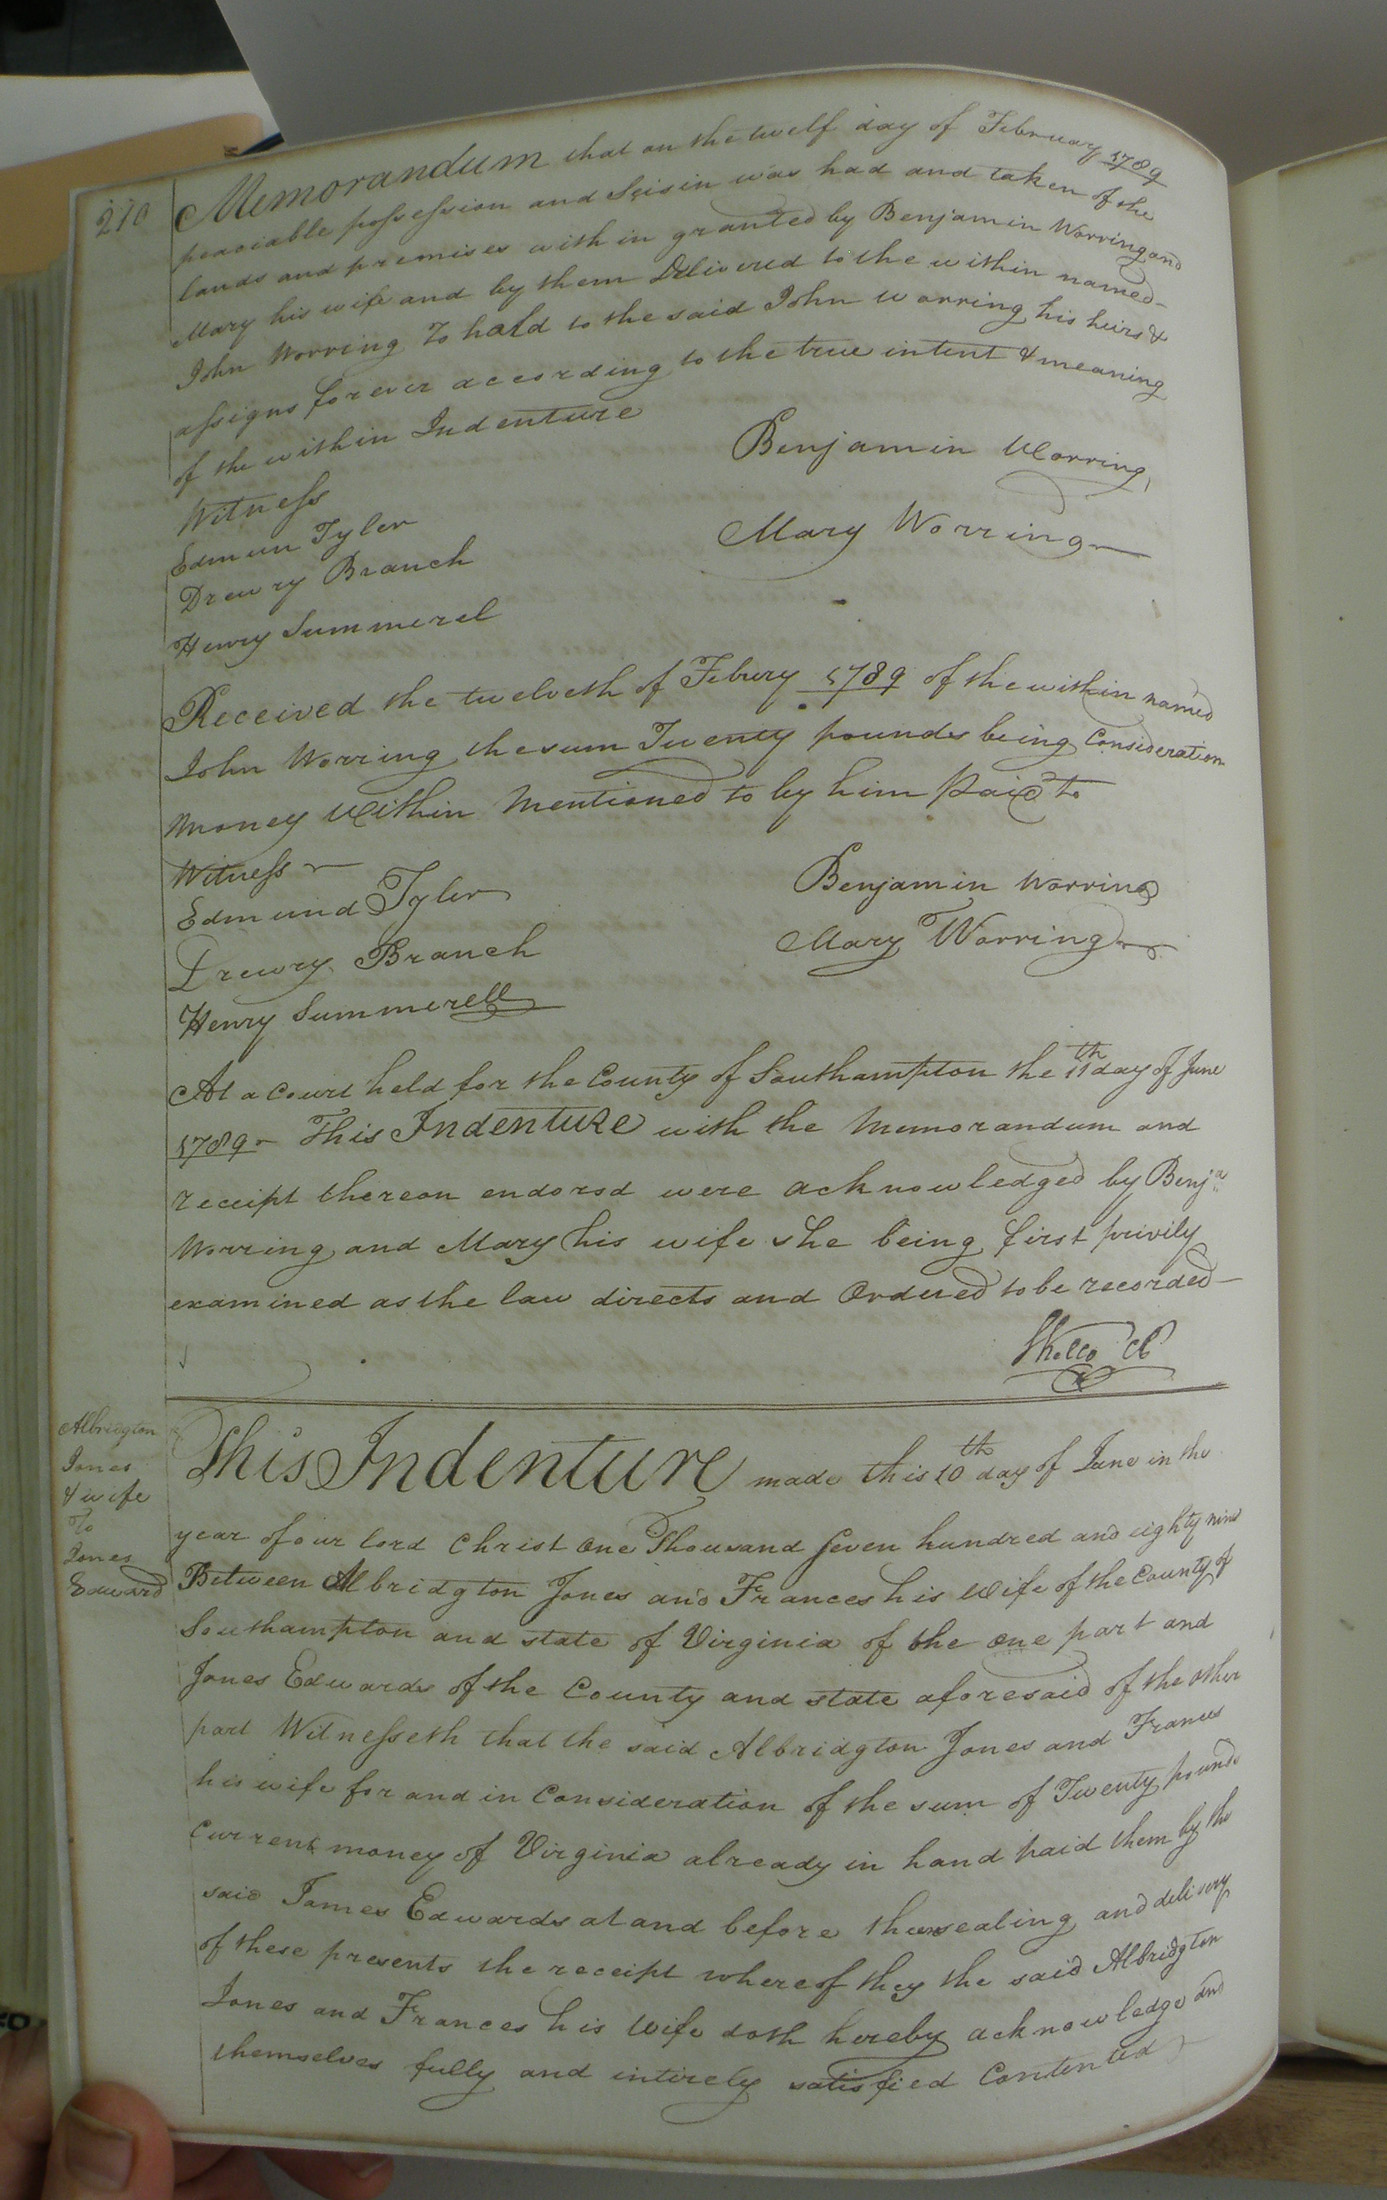 210
Memorandum that on the twelf day of February 1789
peaciable possession and Seisin was had and taken of the
lands and premises with in granted by Benjamin Worring and
Mary his wife and by them Delivered to the within named
John Worring To hold to the said John Worring his heirs &
assigns forever according to the true intent & meaning
of the within Indenture
Benjamin Worring
Witness
Mary Worring
Edmun Tyler
Drewry Branch
Henry Summerel
Received the twelveth of Febury 1789 of the within named
John Worring the sum Twenty pounds being Consideration
money Within Mentioned to by him Paid to
Witness
Benjamin Worring
Edmund Tyler
Mary Worring
Drewry Branch
Henry Summerell
At a Court held for the County of Southampton the 11th day of June
1789 - This Indenture with the Memorandum and
receipt thereon endorsd were acknowledged by Benja
Worring and Mary his wife she being first privily
examined as the law directs and Ordered to be recorded -
Albridgton
Jones
& wife
To
Jones
Edward
This Indenture made this 10th day of June in the
year of our lord Christ One Thousand Seven hundred and eighty nine
Between Albridgton Jones and Frances his Wife of the County of
Southampton and state of Virginia of the one part and
Jones Edwards of the County and state aforesaid of the other
part Witnesseth that the said Albridgton Jones and Frances
his wife for and in Consideration of the sum of Twenty pounds
Current money of Virginia already in hand paid them by the
said James Edwards at and before the sealing and delivery
of these presents the receipt whereof they the said Albridgton
Jones and Frances his Wife doth hereby acknowledge and
themselves fully and intirely satisfied Contented